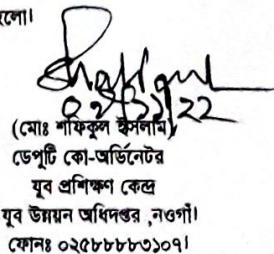 হলো।
০২/১১/২২
(মোঃ শফিকুল ইসলাম)
ডেপুটি কো-অর্ডিনেটর
যুব প্রশিক্ষণ কেন্দ্র
যুব উন্নয়ন অধিদপ্তর ,নওগাঁ।
ফোনঃ ০২৫৮৮৮৮৩১০৭।